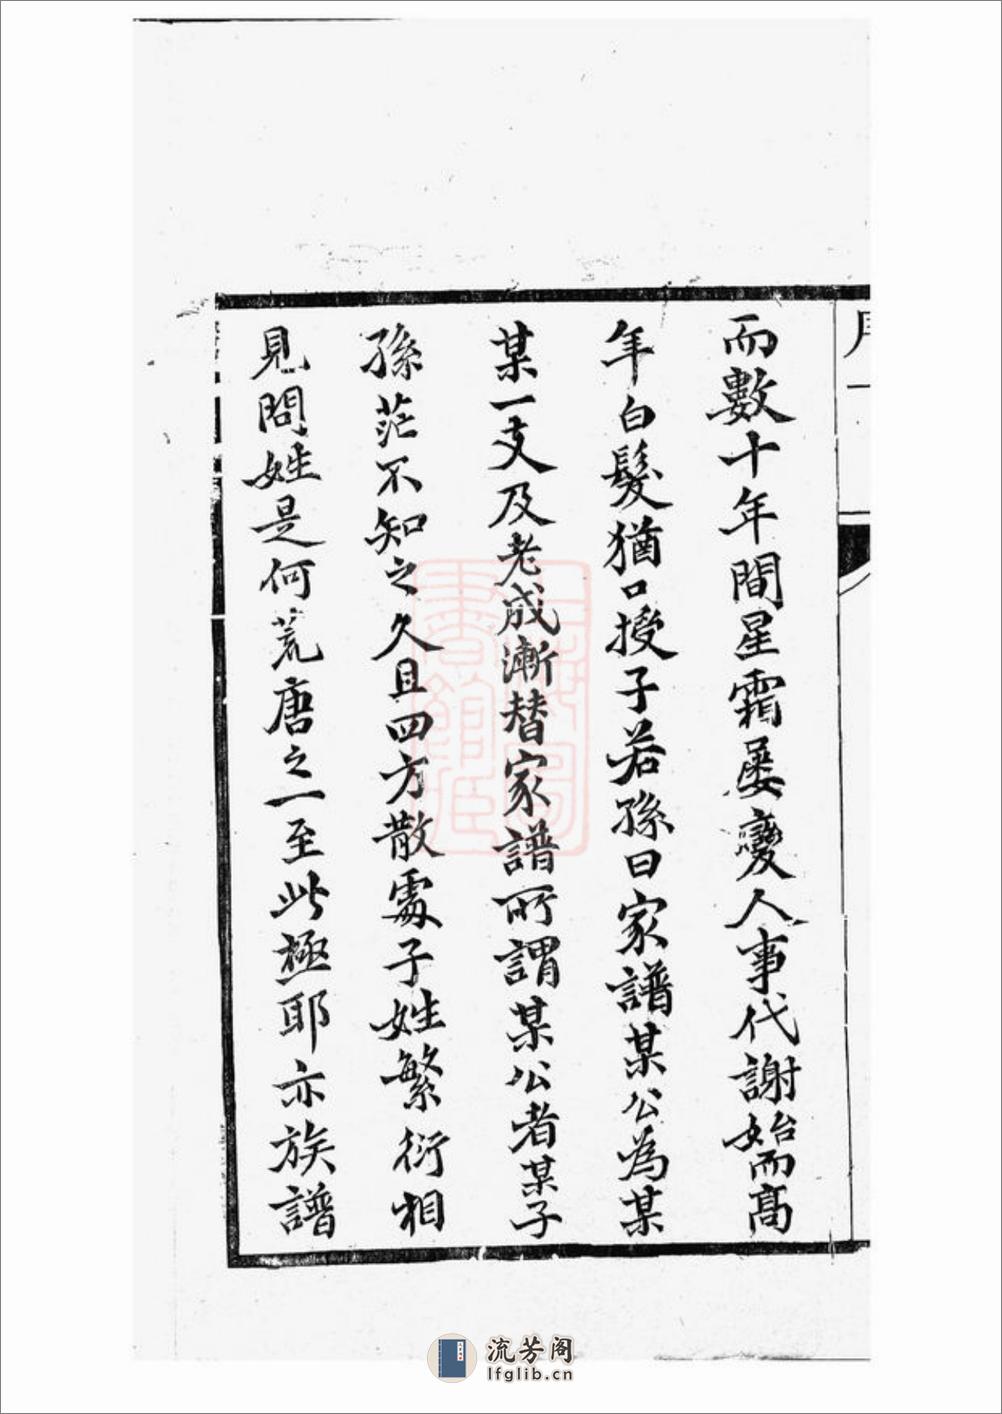 而數十年間星霜屢變人事代謝始而高
年白髮猶口授子若孫曰家譜某公為某
某一支及老成漸替家譜所謂某公者某子
孫茫不知之久且四方散處子姓繁衍相
見問姓是何荒唐之一至此極耶亦族譜
流芳阁
lfglib.cn